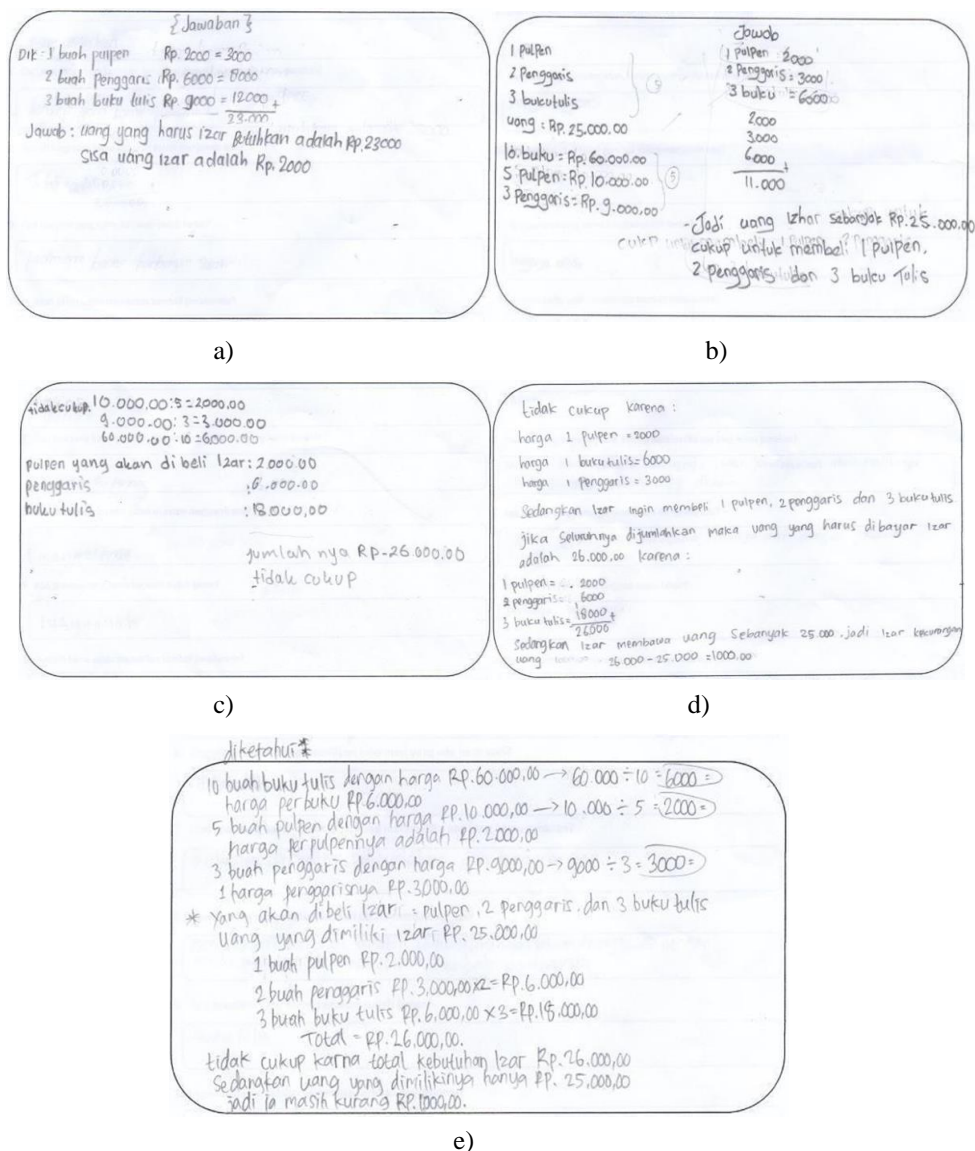 {Jawaban}
Dik : 1 buah pulpen Rp. 2000 = 3000
2 buah Penggaris Rp. 6000 = 8000
3 buah buku tulis Rp. 9000 = 12000 +
23.000
Jawab : uang yang harus izar butuhkan adalah Rp. 23000
Sisa uang izar adalah Rp. 2000
a)
1 Pulpen
2 Penggaris
3 bukutulis
uang : Rp. 25.000.00
10. buku = Rp. 60.000.00
5 pulpen = Rp. 10.000.00
3 Penggaris = Rp. 9.000,00
5
Jawab
1 Pulpen 2000
2 Penggaris = 3000
3 buku = 6000
2000
3000
6000 +
11.000
- Jadi uang Izhar sebanyak Rp. 25.000.00
cukup untuk membeli 1 pulpen,
2 Penggaris dan 3 buku Tulis
b)
tidak cukup. 10.000.00 : 5 = 2000,00
9.000.00 : 3 = 3.000.00
60.000.00 : 10 = 6000.00
pulpen yang akan di beli Izar : 2.000.00
penggaris : 6.000.00
buku tulis : 18.000,00
jumlah nya RP-26.000.00
tidak cukup
c)
tidak cukup karena :
harga 1 pulpen = 2000
harga 1 buku tulis = 6000
harga 1 penggaris = 3000
Sedangkan Izar ingin membeli 1 pulpen, 2 penggaris dan 3 buku tulis
jika seluruhnya dijumlahkan maka uang yang harus dibayar Izar
adalah 26.000.00 karena :
1 pulpen = 2000
2 penggaris = 6000
3 buku tulis = 18000 +
26000
Sedangkan Izar membawa uang Sebanyak 25.000. jadi Izar kekurangan
uang 26.000 - 25.000 = 1000.00
d)
diketahui *
10 buah buku tulis dengan harga RP. 60.000,00 → 60.000 ÷ 10 = 6000 =
harga perbuku RP. 6.000,00
5 buah pulpen dengan harga RP. 10.000,00 → 10.000 ÷ 5 = 2000 =
harga perpulpennya adalah RP. 2.000,00
3 buah penggaris dengan harga RP. 9000,00 → 9000 ÷ 3 = 3000 =
1 harga penggarisnya RP. 3000,00
* Yang akan dibeli Izar : pulpen, 2 penggaris, dan 3 buku tulis
Uang yang dimiliki Izar RP. 25.000,00
1 buah pulpen RP. 2.000,00
2 buah penggaris RP. 3.000,00 x 2 = RP. 6.000,00
3 buah buku tulis RP. 6.000,00 x 3 = RP. 18.000,00
Total = RP. 26.000,00.
tidak cukup karna total kebutuhan Izar RP. 26.000,00
sedangkan uang yang dimilikinya hanya RP. 25.000,00
jadi ia masih kurang RP. 1000,00.
e)